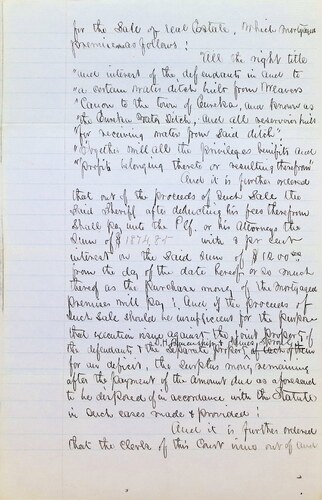 for the Sale of real Estate, Which Mortgaged
premises as follows:
All the right title
"and interest of the defendants in and to
"a certain water ditch built from Weavers
"Canon to the town of Eureka, and known as
"the Eureka Water Ditch, and all reservoirs built
"for receiving water from Said ditch".
"Together with all the privileges benefits and
"profits belonging thereto or resulting therefrom"
And it is further ordered
that out of the proceeds of such Sale the
Said Sheriff after deducting his fees therefrom
Shall pay unto the Plf. or his Attorneys the
Sum of $ 1874 85 with 3 pr cent
interest on the Said Sum of $ 1200 00
from the day of the date hereof or so much
thereof as the purchase money of the Mortgaged
premises will pay: And if the proceeds of
Such Sale should be insufficient for the purpose
that execution issue against the Joint property of
the defendants & the separate property of each of them
for an deficit, the surplus money remaining
after the payment of the amount due as aforesaid
to be disposed of in accordance with the Statute
in Such cases made & provided:
And it is further ordered
that the Clerk of this Court issue out of and